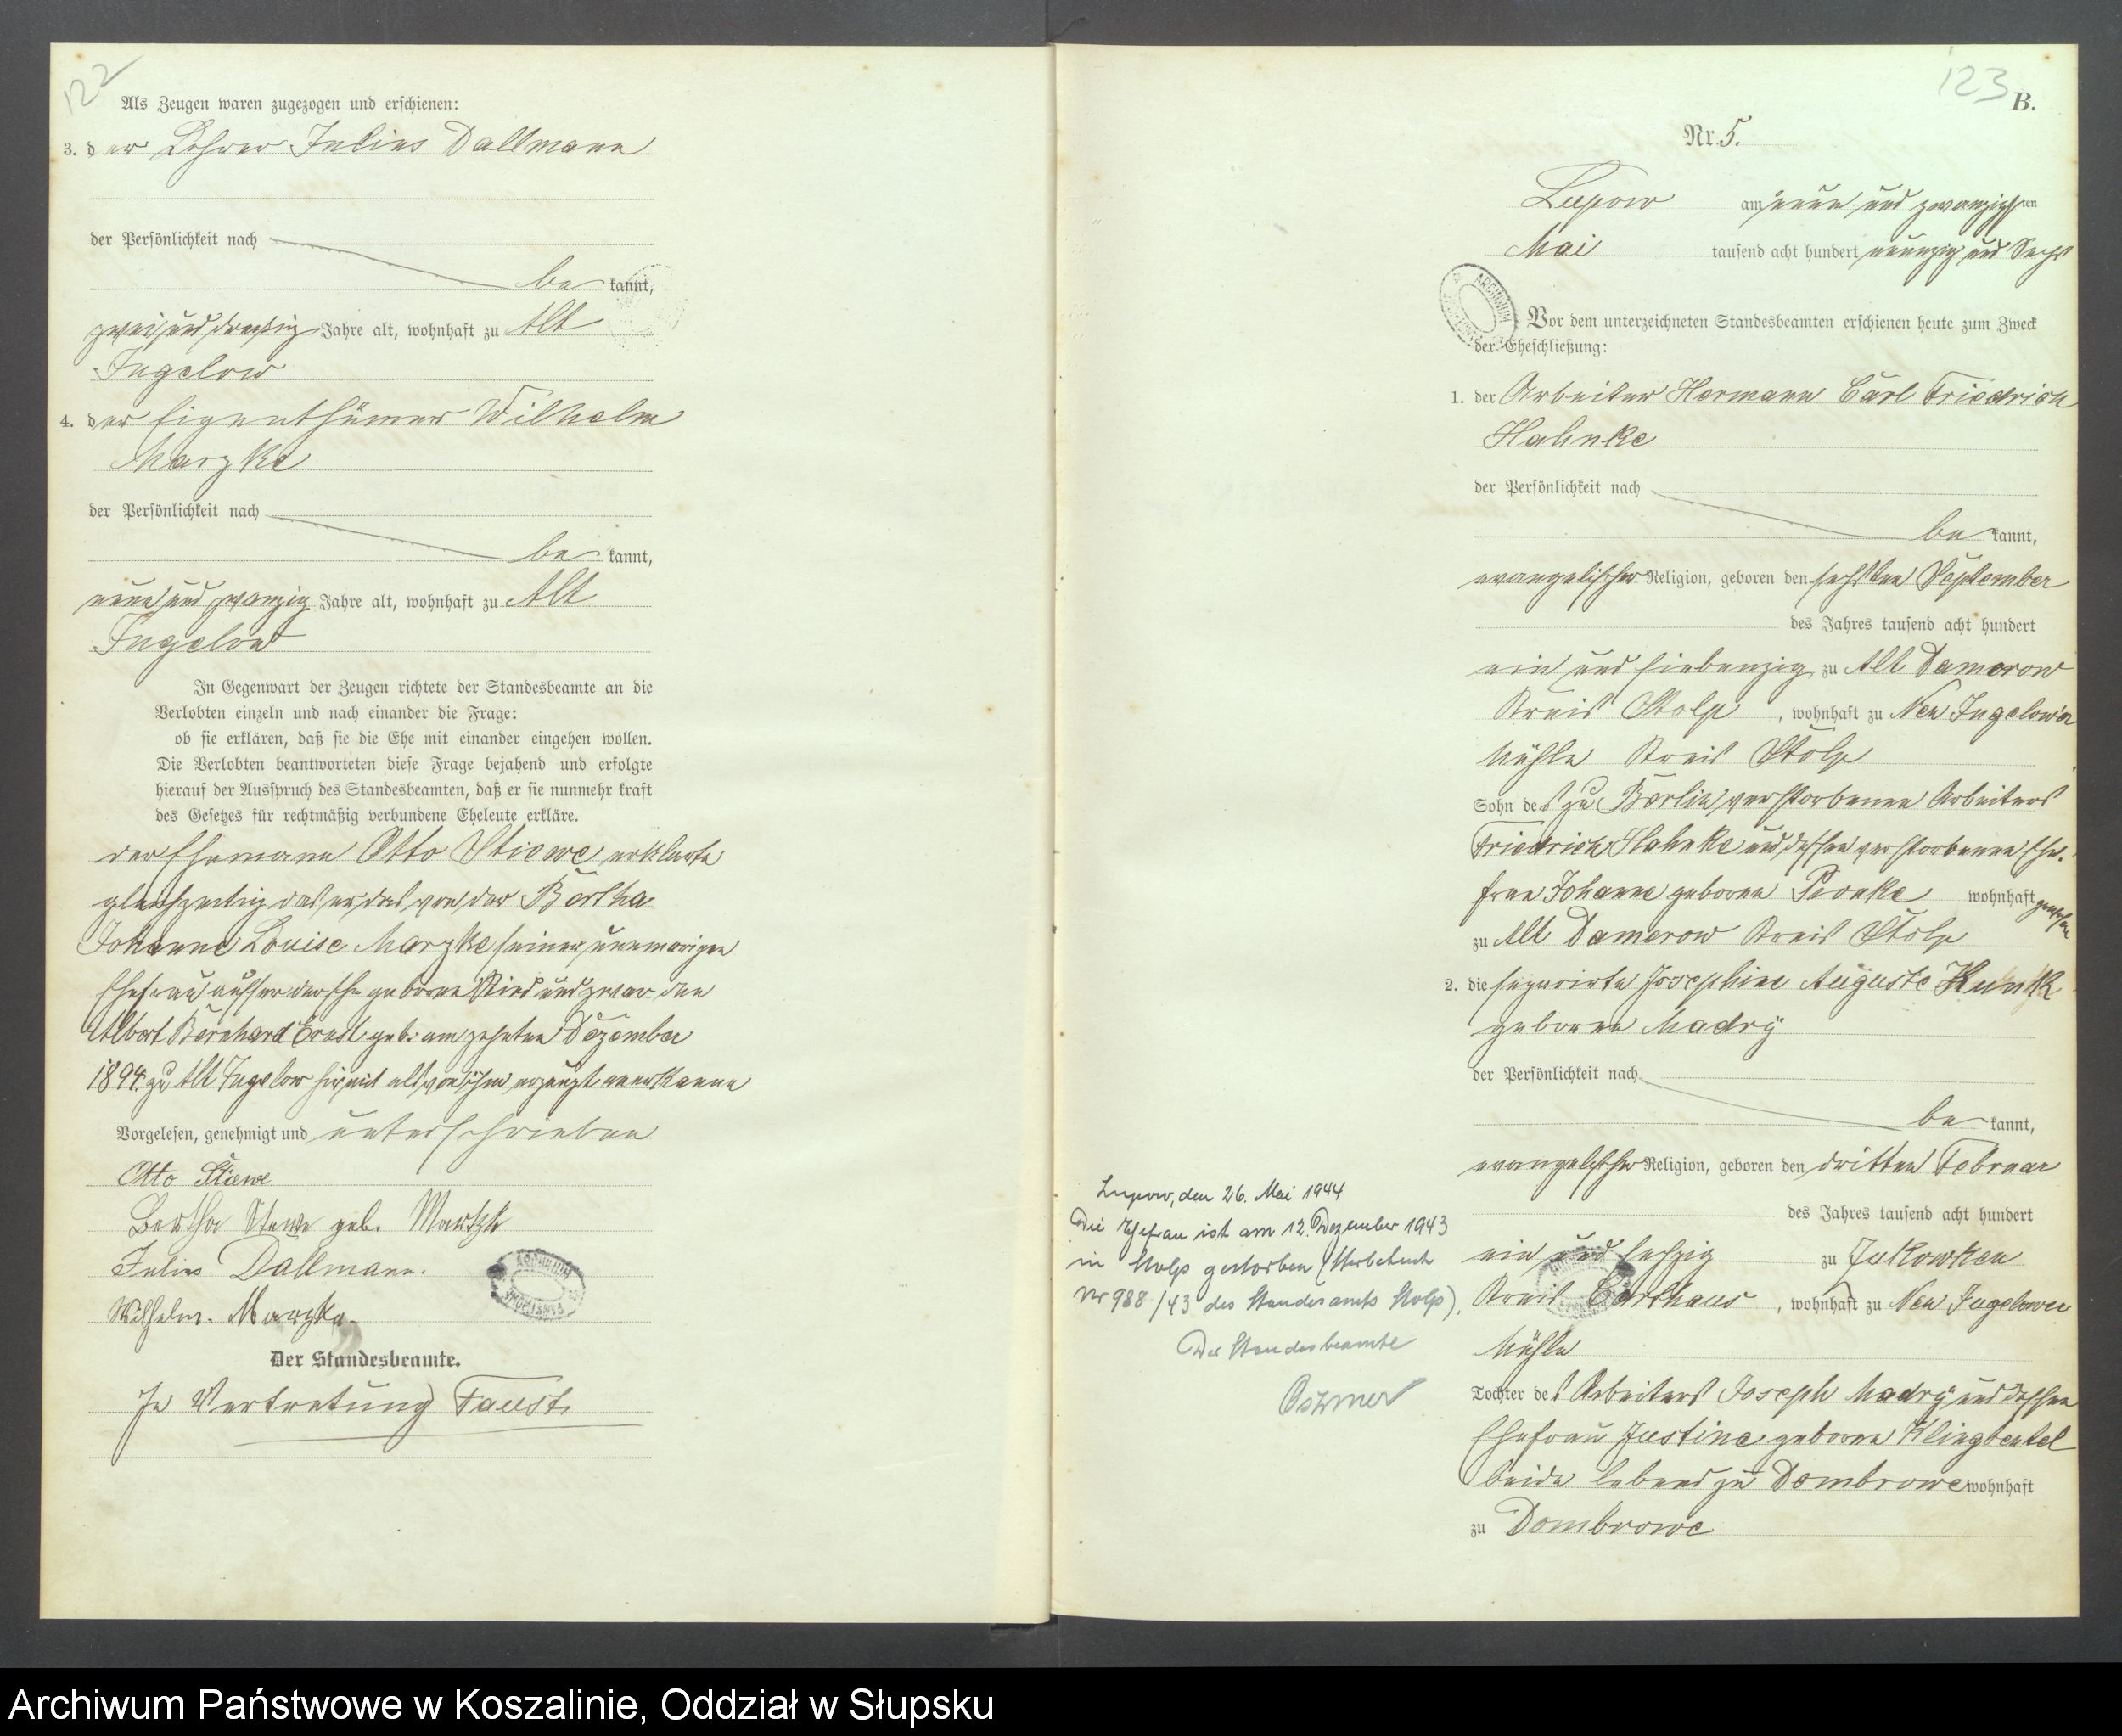 122
Als Zeugen waren zugezogen und erschienen:
3. der Lehrer Julius Dallmann
der Persönlichkeit nach
be kannt,
zwei und dreißig Jahre alt, wohnhaft zu Alt
Jugelow
4. der Eigenthümer Wilhelm
Marzke
der Persönlichkeit nach
be kannt,
neun und zwanzig Jahre alt, wohnhaft zu Alt
Jugelow
In Gegenwart der Zeugen richtete der Standesbeamte an die
Verlobten einzeln und nach einander die Frage:
ob sie erklären, daß sie die Ehe mit einander eingehen wollen.
Die Verlobten beantworteten diese Frage bejahend und erfolgte
hierauf der Ausspruch des Standesbeamten, daß er sie nunmehr kraft
des Gesetzes für rechtmäßig verbundene Eheleute erkläre.
der Ehemann Otto Stiewe erklärte
gleichzeitig das er, das von der Bertha
Johanne Louise Marzke seiner nunmerigen
Ehefrau ausser der Ehe geborne Kind und zwar den
Albert Bernhard Ernst geb. am zehnten Dezember
1894 zu Alt Jugelow hirmit als von ihm erzeugt anerkenne
Vorgelesen, genehmigt und unterschrieben
Otto Stiewe
Bertha Stewe geb. Martzke
Julius Dallmann.
Wilhelm. Marzke
Der Standesbeamte.
In Vertretung Faust
123
B.
Nr. 5.
Lupow am neun und zwanzigsten
Mai tausend acht hundert neunzig und Sechs
Vor dem unterzeichneten Standesbeamten erschienen heute zum Zweck
der Eheschließung:
1. der Arbeiter Hermann Carl Friedrich
Hahnke
der Persönlichkeit nach
be kannt,
evangelischer Religion, geboren den sechsten September
des Jahres tausend acht hundert
ein und siebenzig zu Alt Damerow
Kreis Stolp, wohnhaft zu Neu Jugelow'er
Mühle Kreis Stolp
Sohn des zu Berlin verstorbenen Arbeiters
Friedrich Hahnke und dessen verstorbenen Ehe-
frau Johanne geborne wohnhaft gewesen
zu Alt Damerow Kreis Stolp
2. die separirte Josephine Auguste
geborne Madry
der Persönlichkeit nach
be kannt,
evangelischer Religion, geboren den dritten Februar
des Jahres tausend acht hundert
ein und sechzig zu Jukowken
Kreis Carthaus, wohnhaft zu Neu Jugelower
Mühle
Tochter des Arbeiters Joseph Madry und dessen
Ehefrau Justine geborne Klingbeutel
beide lebend zu Dombrowe wohnhaft
zu Dombrowe
Lupow, den 26. Mai 1944
Die Ehefrau ist am 12. Dezember 1943
in Stolp gestorben (Sterbebuch
Nr 988/43 des Standesamts Stolp).
Der Standesbeamte
ARCHIWUM
Archiwum Państwowe w Koszalinie, Oddział w Słupsku